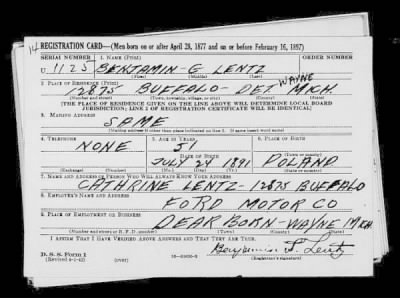 14
REGISTRATION CARD—(Men born on or after April 28, 1877 and on or before February 16, 1897)
SERIAL NUMBER 1. NAME (Print) ORDER NUMBER
U 1125 BENJAMIN - G LENTZ
(First) (Middle) (Last)
2. PLACE OF RESIDENCE (Print)
12875 BUFFALO - DET. WAYNE MICH.
(Number and street) (Town, township, village, or city) (County) (State)
[THE PLACE OF RESIDENCE GIVEN ON THE LINE ABOVE WILL DETERMINE LOCAL BOARD
JURISDICTION; LINE 2 OF REGISTRATION CERTIFICATE WILL BE IDENTICAL]
3. MAILING ADDRESS
SAME
[Mailing address if other than place indicated on line 2. If same insert word same]
4. TELEPHONE 5. AGE IN YEARS 6. PLACE OF BIRTH
NONE 51
DATE OF BIRTH (Town or county)
JULY 24 1891 POLAND
(Exchange) (Number) (Mo.) (Day) (Yr.) (State or country)
7. NAME AND ADDRESS OF PERSON WHO WILL ALWAYS KNOW YOUR ADDRESS
CATHRINE LENTZ - 12875 BUFFALO
8. EMPLOYER'S NAME AND ADDRESS
FORD MOTOR CO
9. PLACE OF EMPLOYMENT OR BUSINESS
DEARBORN - WAYNE MICH.
(Number and street or R. F. D. number) (Town) (County) (State)
I AFFIRM THAT I HAVE VERIFIED ABOVE ANSWERS AND THAT THEY ARE TRUE.
D. S. S. Form 1 Benjamin G. Lentz
(Revised 4-1-42) (over) (Registrant's signature)